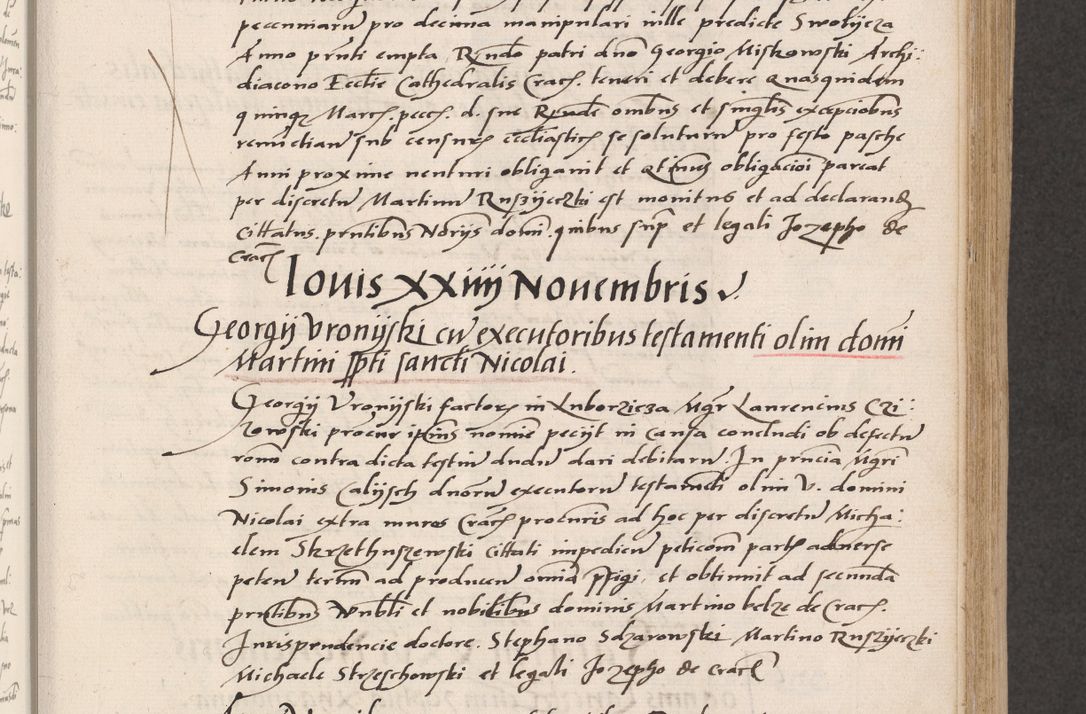 pecuniarum pro decima manipulari ville predicte Swoiycza
Anno prnti empta, Rndo patri dno Georgio Miskowski Archi:
diacono Ecclie Cathedralis Crac. teneri et debere Quasquidem
quinqz Marc. pecc. d. sue Rnde omnibus et singlis excepcionibus
remictiam sub censuris ecclesiasticis se soluturum pro festo pasche
Anni proxime venturi obligavit et obligacioni pareat
per discretum Martinum Ruszyeczki est monitus et ad declarand
cittatus. prntibus Norys domi. quibus sup et legali Jozepho de
Crac
Iouis XXIIII Nouembris
Georgij Vronijski cum executoribus testamenti olim domi
Martini ppti sancti Nicolai.
Georgij Vronijski factoris in Luborzicza Mgr Laurencius Czi:
zowski procur ipius nomine pecijt in causa concludi ob defectum
rono contra dicta testium dudum dari debitarum. In prncia Mgri
Simonis Calijsch duorum executorum testamenti olim V. domini
Nicolai extra muros Crac procuris ad hoc per discretum Micha:
elem Skrzethuszewski cittati impedien peticom partis aduerse
peten termn ad producen omia pfigi, et obtinuit ad secunda
prntibus Wnbli et nobilibus dominis Martino belze de Crac.
Jurisprudencie doctore. Stephano Sdzarowski Martino Ruszyeczki
Michaele Strzeschowski et legali Jozepho de Crac